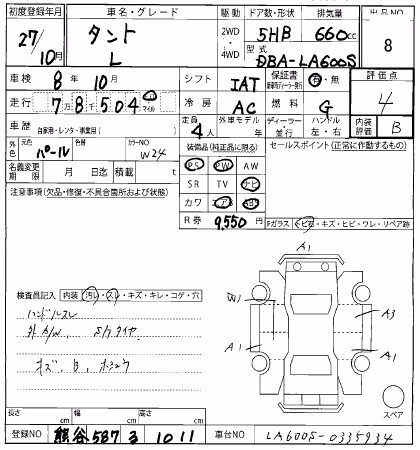 初度登録年月 車名・グレード 駆動 ドア数・形状 排気量 出品NO
27/10月 タント L 2WD・4WD 5HB 660cc 8
型式 DBA-LA600S
車検 8年10月 シフト IAT 保証書 有・無 評価点
走行 7万8504 マイル 冷房 AC 燃料 G 4
車歴 自家用・レンタ・事業用( ) 定員 4人 外車モデル 年 ディーラー・並行 ハンドル 左・右 内装評価 B
外色 元色 パール 色替 カラーNO W24 装備品(純正品に限る) セールスポイント(正常に作動するもの)
名義変更期限 月 日迄 積載 t PS PW AW
注意事項(欠品・修復・不具合箇所および状態) SR TV ナビ
カワ エアB ABS
R券 9,550円 Fガラス トビ石・キズ・ヒビ・ワレ・リペア跡
A1
検査員記入 内装 汚レ・スレ・キズ・キレ・コゲ・穴
ハンドルスレ
A3
A1 A1
キズ、B、
スペア
長さ cm 幅 cm 高さ cm
登録NO 熊谷 587 る 1011 車台NO LA600S-0335934